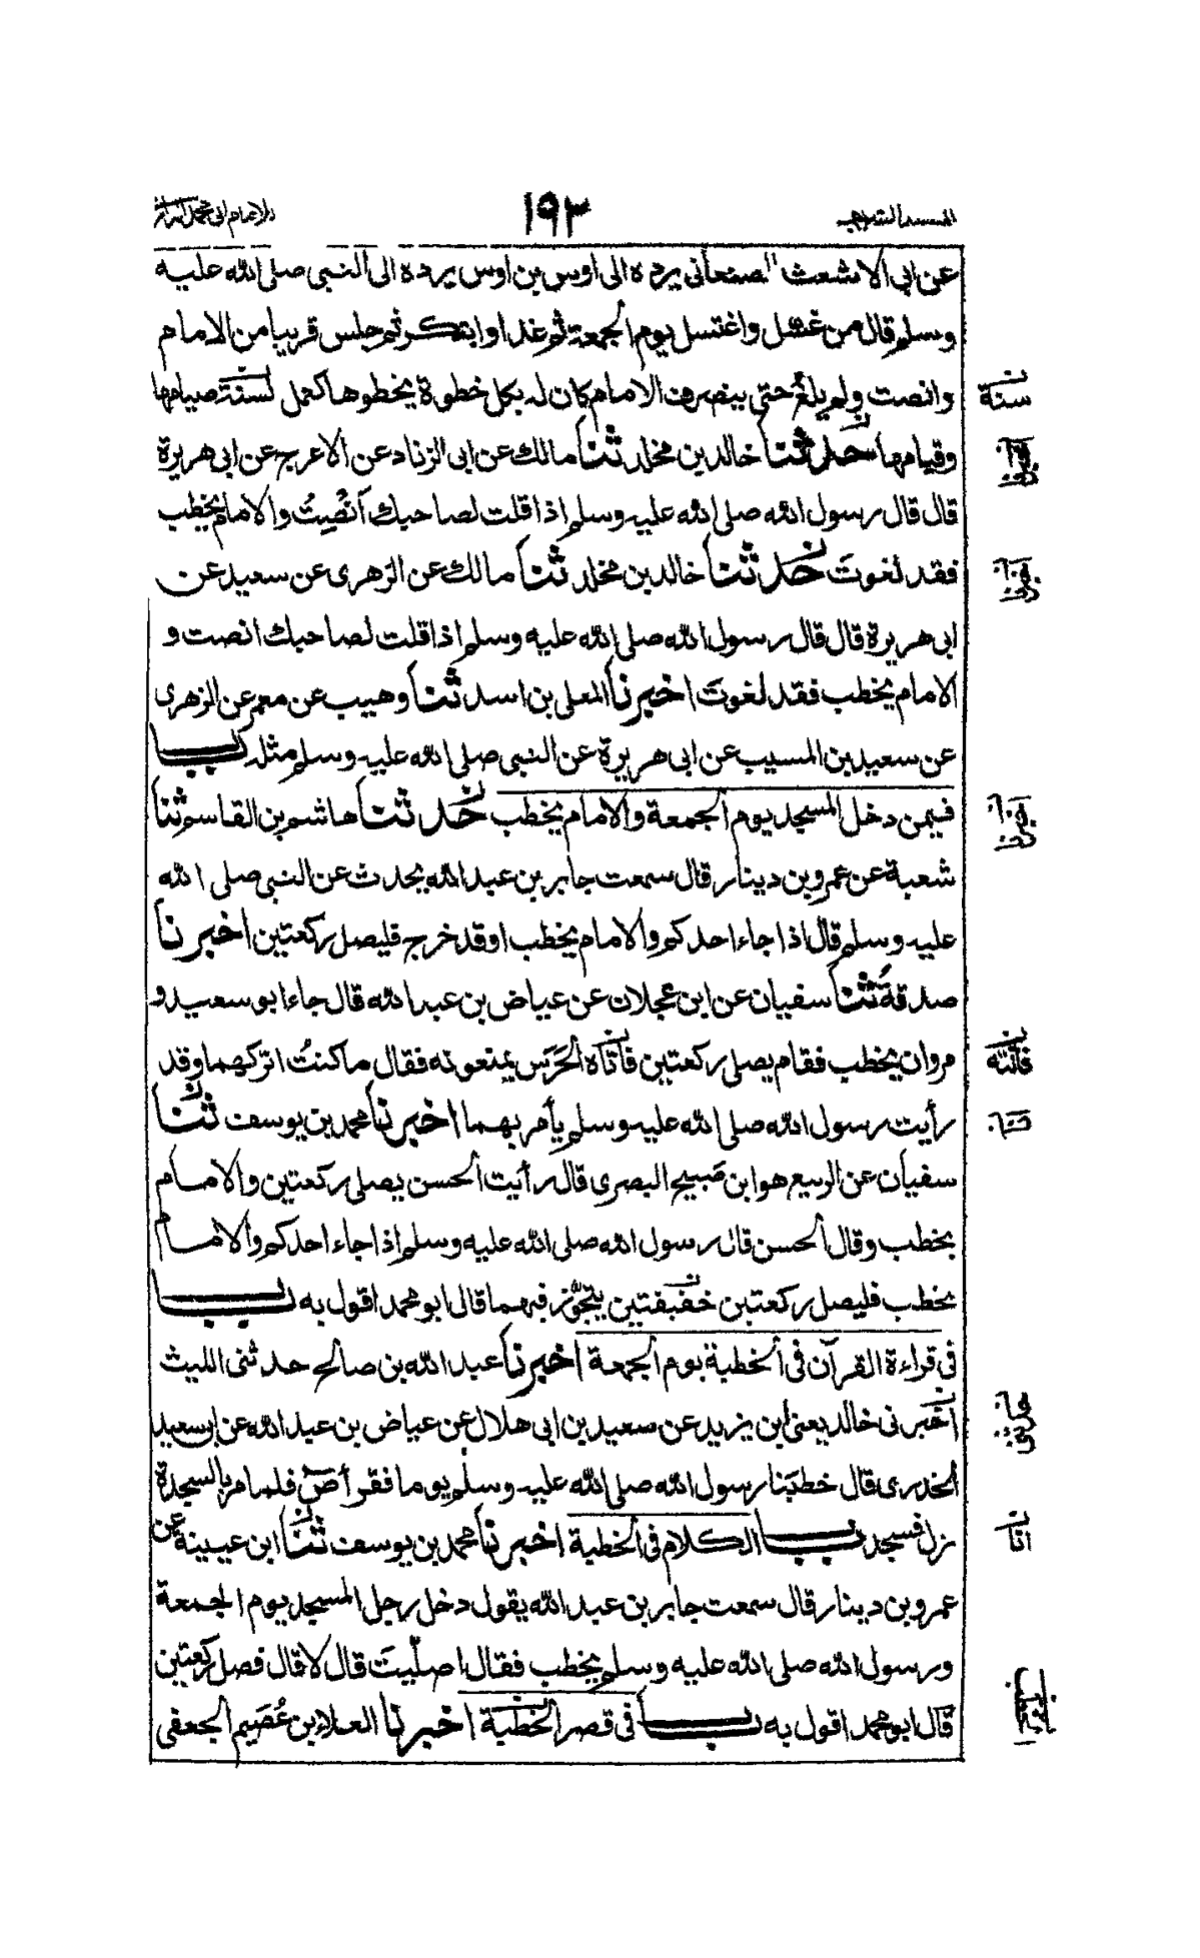 المسند الشريف ١٩٣ للامام ابى محمد الدارمى
عن ابى الاشعث الصنعانى يرده الى اوس بن اوس يرده الى النبى صلى الله عليه
وسلم قال من غسل واغتسل يوم الجمعة ثم غدا وابتكر ثم جلس قريبا من الامام
وانصت ولم يلغ حتى ينصرف الامام كان له بكل خطوة يخطوها كعمل لسنة صيامها
سنة
وقيامها حدثنا خالد بن مخلد ثنا مالك عن ابى الزناد عن الاعرج عن ابى هريرة
اخبرنا
قال قال رسول الله صلى الله عليه وسلم اذا قلت لصاحبك أنْصِتْ والامام يخطب
فقد لغوتَ حدثنا خالد بن مخلد ثنا مالك عن الزهرى عن سعيد عن
اخبرنا
ابى هريرة قال قال رسول الله صلى الله عليه وسلم اذا قلت لصاحبك انصت و
الامام يخطب فقد لغوتَ اخبرنا المعلى بن اسد ثنا وهيب عن معمر عن الزهرى
عن سعيد بن المسيب عن ابى هريرة عن النبى صلى الله عليه وسلم مثله باب
فيمن دخل المسجد يوم الجمعة والامام يخطب حدثنا هاشم بن القاسم ثنا
اخبرنا
شعبة عن عمرو بن دينار قال سمعت جابر بن عبد الله يحدث عن النبى صلى الله
عليه وسلم قال اذا جاء احدكم والامام يخطب او قد خرج فليصل ركعتين اخبرنا
صدقة ثنا سفيان عن ابن عجلان عن عياض بن عبد الله قال جاء ابو سعيد و
مروان يخطب فقام يصلى ركعتين فاتاه الحَرَس يمنعونه فقال ما كنتُ اتركهما وقد
فأتته
رأيت رسول الله صلى الله عليه وسلم يأمر بهما اخبرنا محمد بن يوسف ثنا
سفيان عن الربيع هو ابن صَبيح البصرى قال رأيت الحسن يصلى ركعتين والامام
يخطب وقال الحسن قال رسول الله صلى الله عليه وسلم اذا جاء احدكم والامام
يخطب فليصل ركعتين خفيفتين يتجوّز فيهما قال ابو محمد اقول به باب
فى قراءة القرآن فى الخطبة يوم الجمعة اخبرنا عبد الله بن صالح حدثنى الليث
اخبرنى خالد يعنى ابن يزيد عن سعيد بن ابى هلال عن عياض بن عبد الله عن ابى سعيد
حدثنى
الخدرى قال خطبَنا رسول الله صلى الله عليه وسلم يوما فقرأ صٓ فلما مر بالسجدة
نزل فسجد باب الكلام فى الخطبة اخبرنا محمد بن يوسف ثنا ابن عيينة عن
انا
عمرو بن دينار قال سمعت جابر بن عبد الله يقول دخل رجل المسجد يوم الجمعة
ورسول الله صلى الله عليه وسلم يخطب فقال اصلّيتَ قال لا قال فصل ركعتين
قال ابو محمد اقول به باب فى قصر الخطبة اخبرنا العلاء بن عُصَيم الجعفى